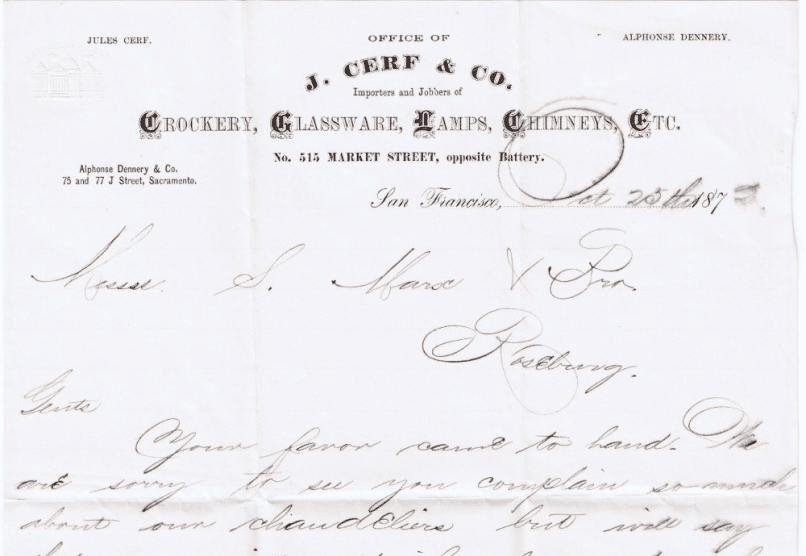 JULES CERF.
OFFICE OF
ALPHONSE DENNERY.
J. CERF & CO.
Importers and Jobbers of
CROCKERY, GLASSWARE, LAMPS, CHIMNEYS, ETC.
No. 515 MARKET STREET, opposite Battery.
Alphonse Dennery & Co.
75 and 77 J Street, Sacramento.
San Francisco, Oct 25th 187
Messr. S. Marx & Bro.
Roseburg.
Gents
Your favor came to hand. We
are sorry to see you complain so much
about our chandeliers but will say